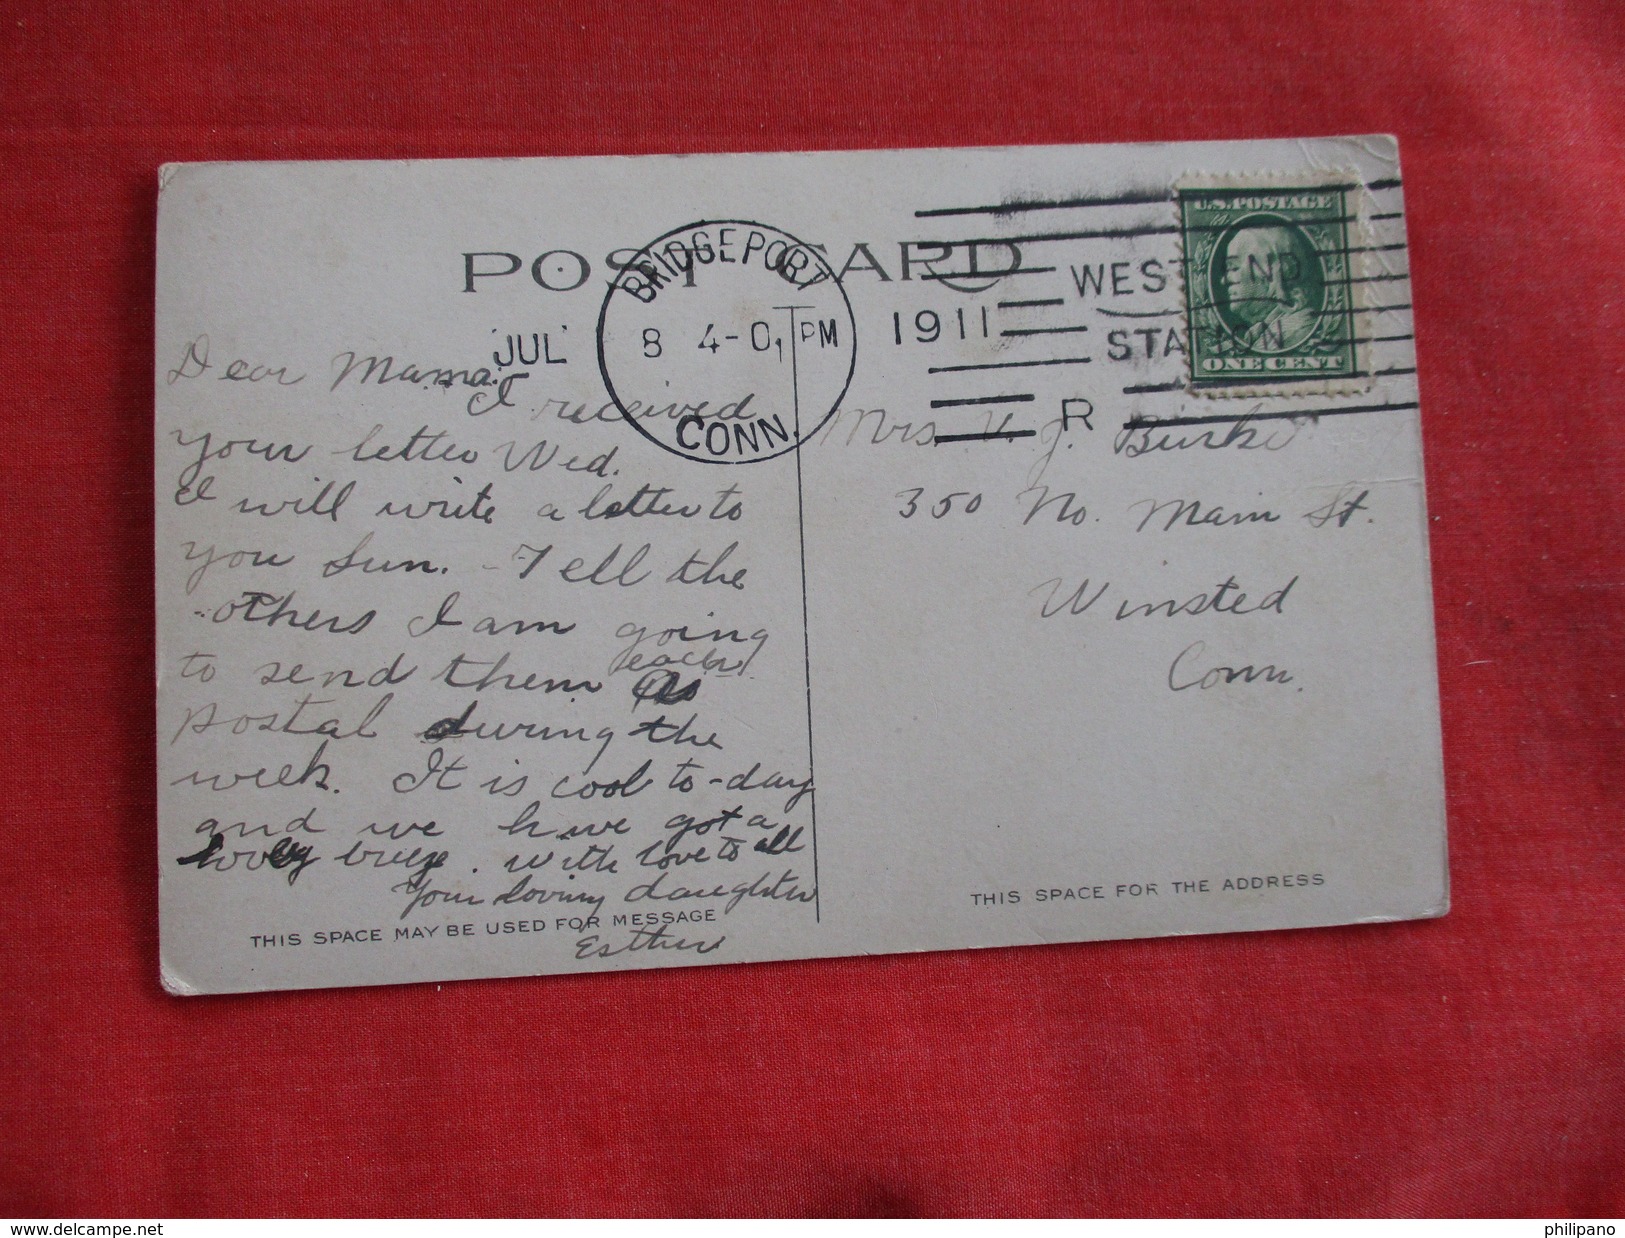 POST CARD
BRIDGEPORT
JUL 8 4-0 PM 1911
CONN.
WEST END
STATION
R
U.S. POSTAGE
ONE CENT
Dear Mama:
I received
your letter Wed.
I will write a letter to
you Sun. - Tell the
others I am going
to send them each
postal during the
week. It is cool to-day
and we have got a
breeze. With love to all
Your loving daughter
Esther
THIS SPACE MAY BE USED FOR MESSAGE
Mrs. J. Burke
350 No. Main St.
Winsted
Conn.
THIS SPACE FOR THE ADDRESS
www.delcampe.net
philipano